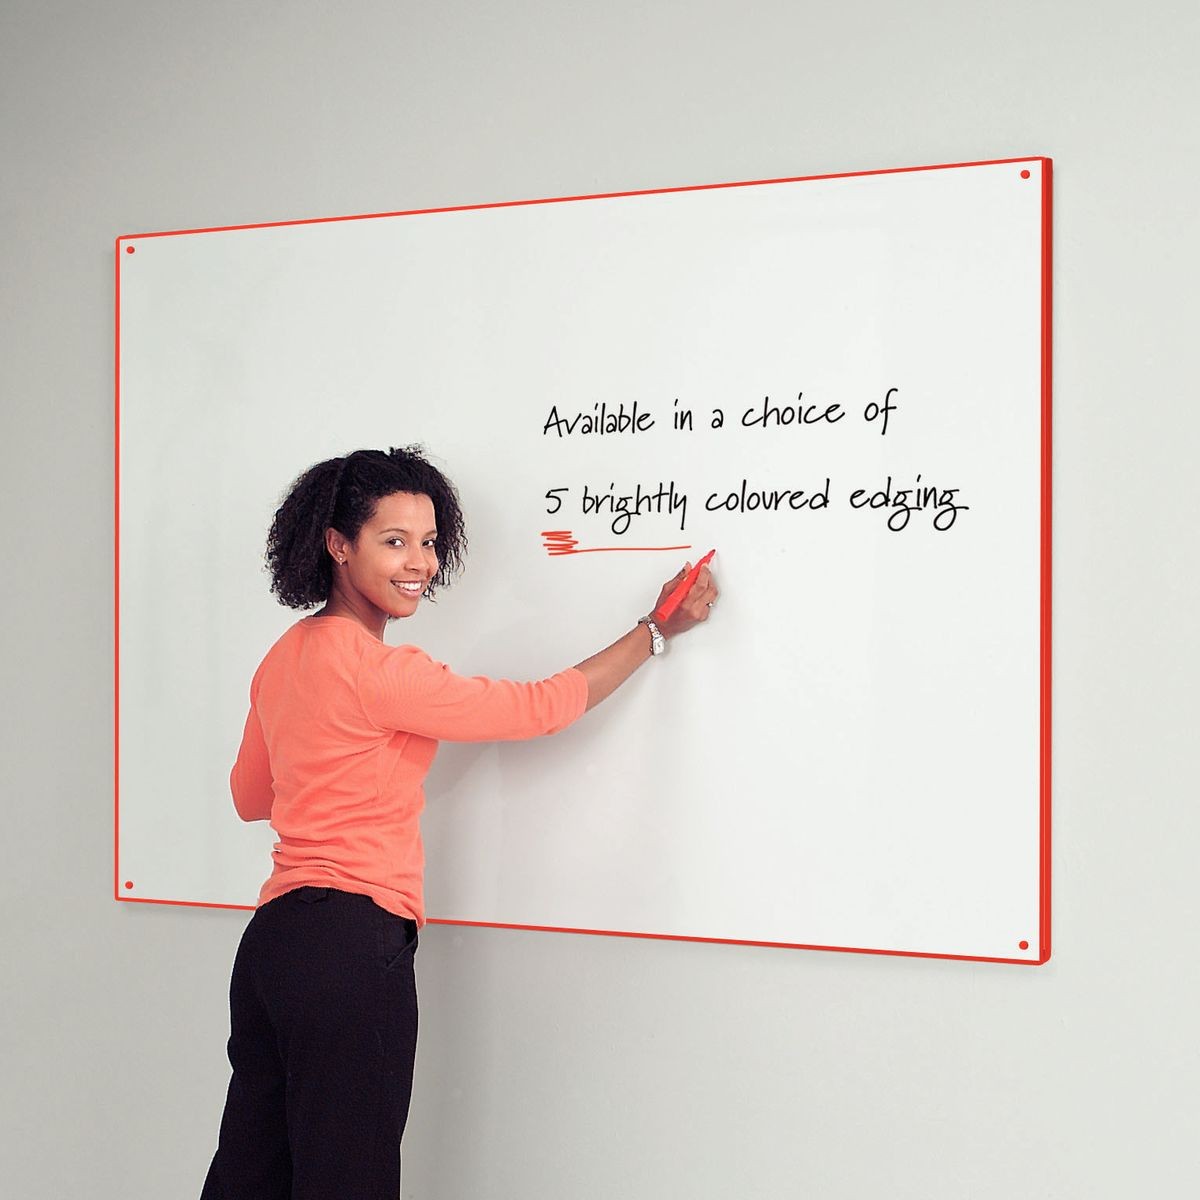 Available in a choice of
5 brightly coloured edging